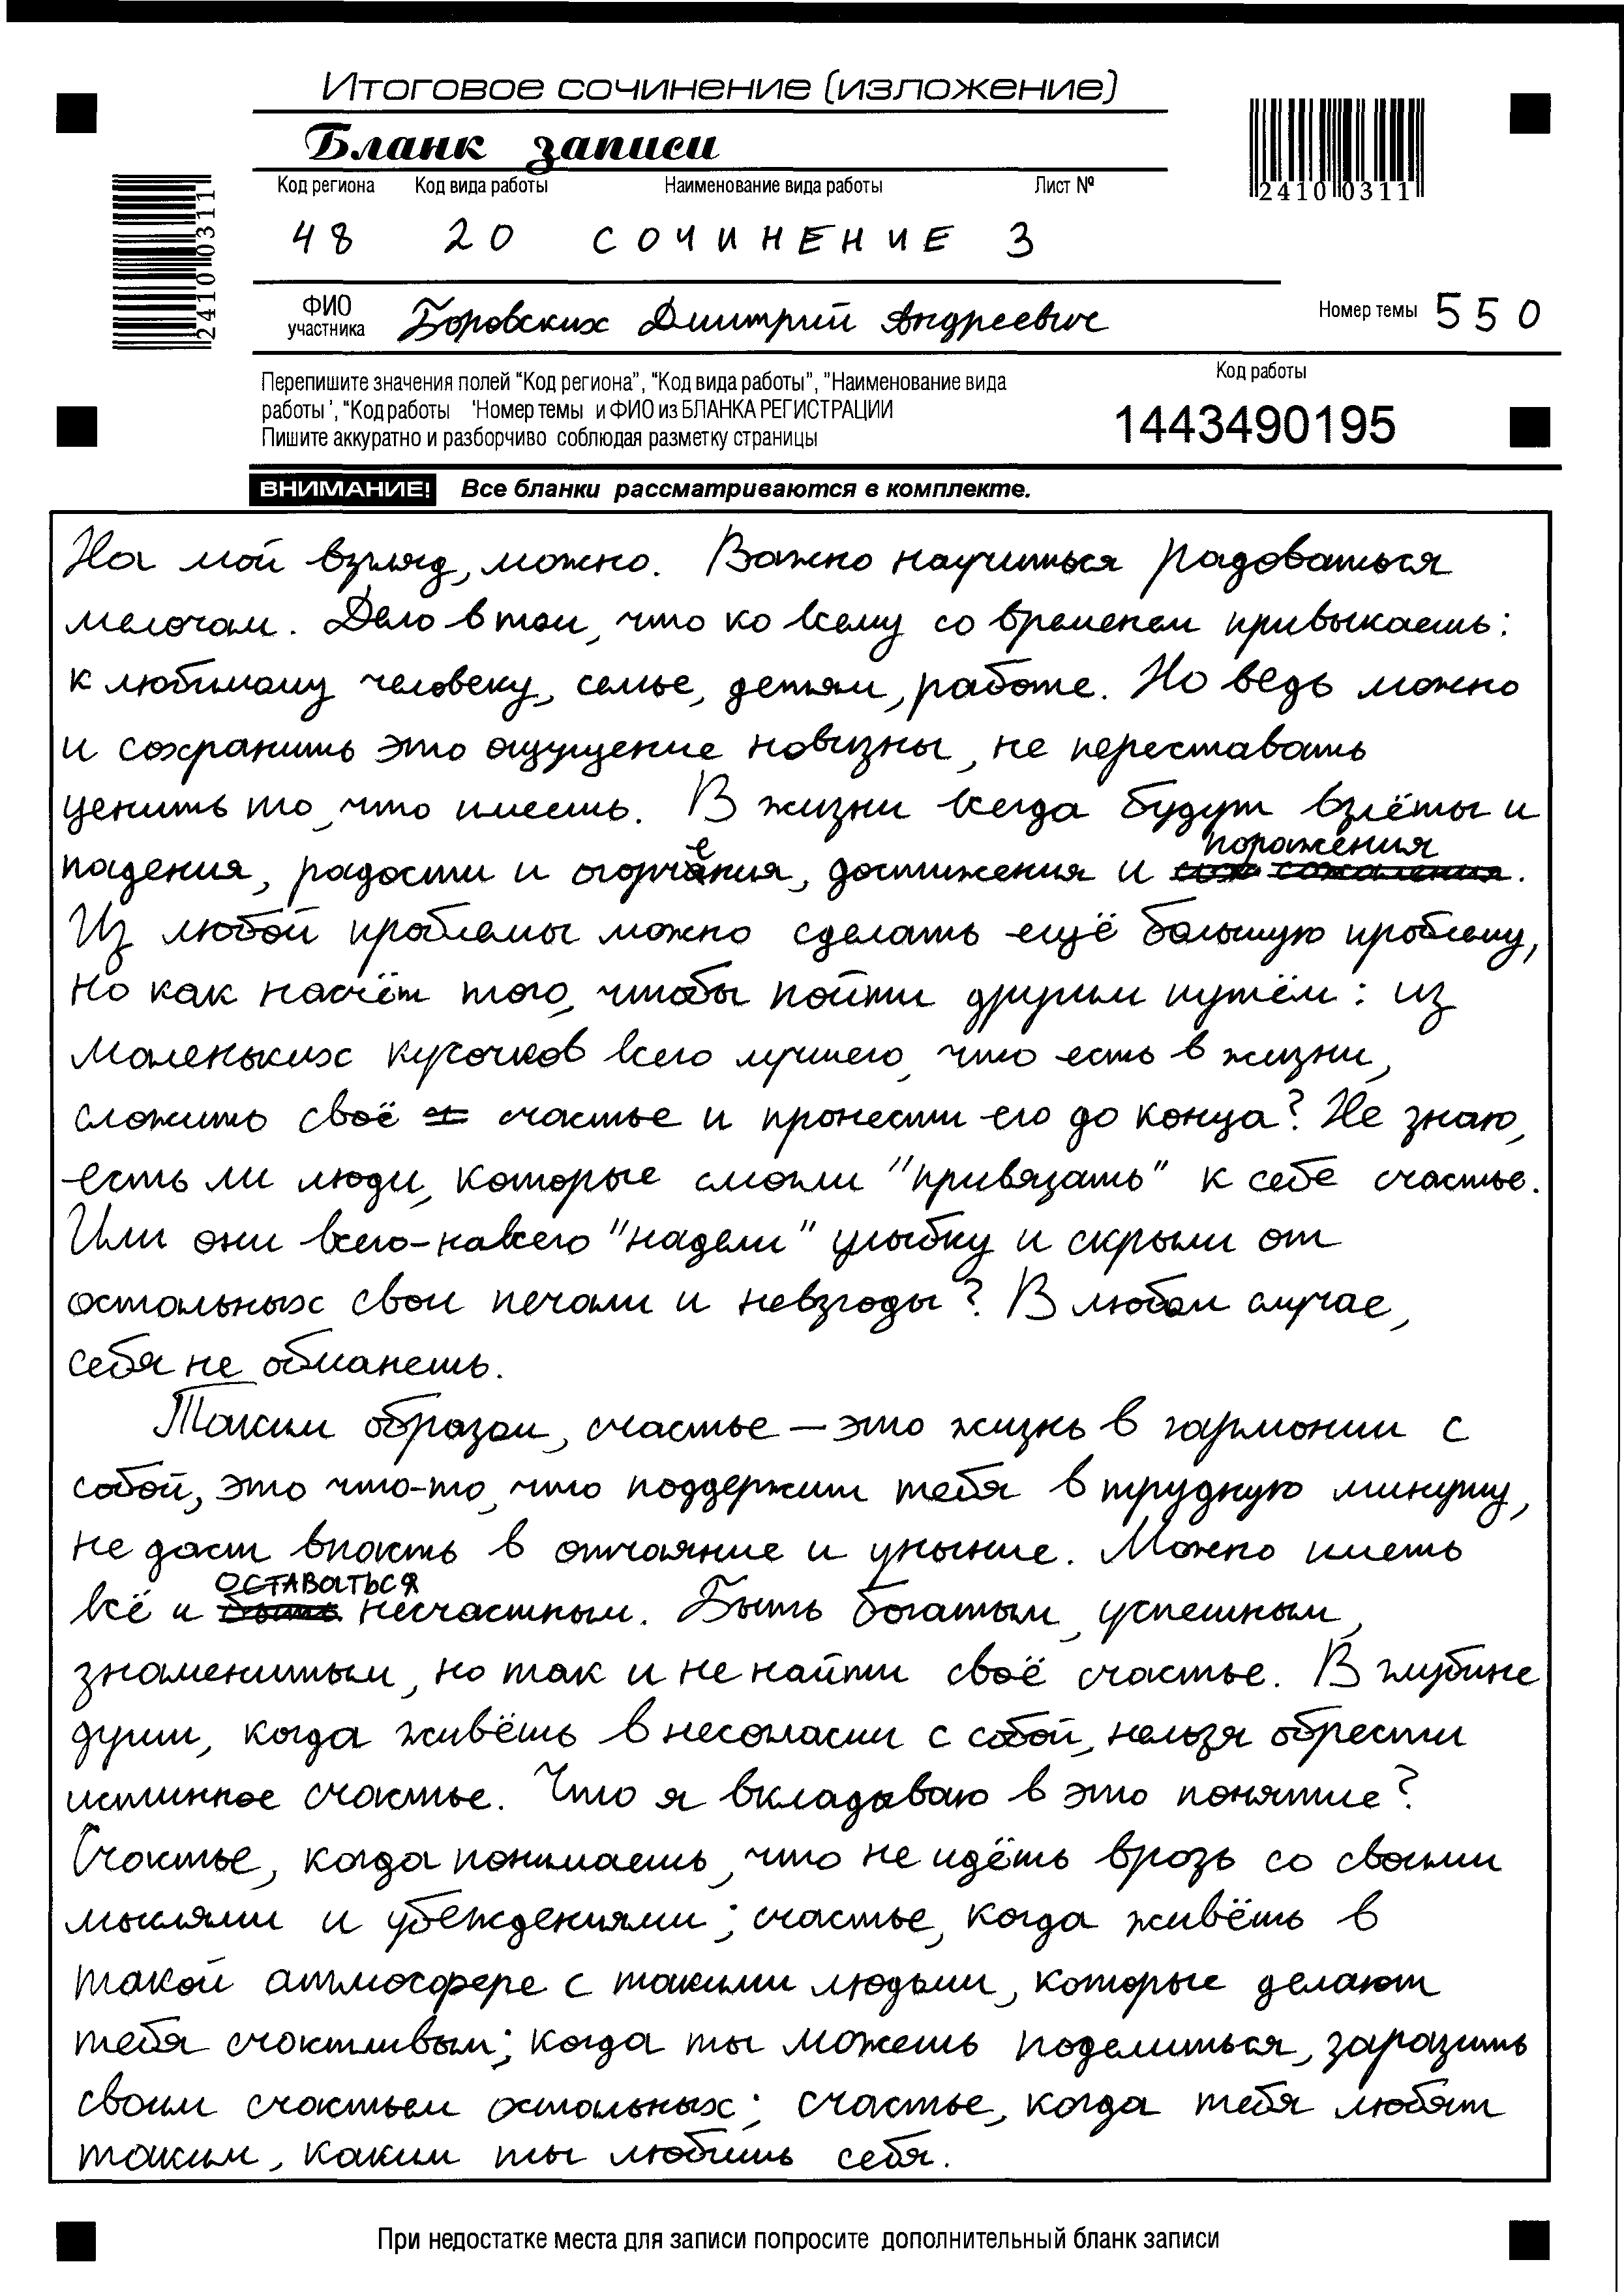 Итоговое сочинение (изложение)
Бланк записи
Код региона Код вида работы Наименование вида работы Лист №
48 20 СОЧИНЕНИЕ 3
24100311
24100311
ФИО участника Боровских Дмитрий Андреевич Номер темы 550
Перепишите значения полей "Код региона", "Код вида работы", "Наименование вида
работы", "Код работы 'Номер темы и ФИО из БЛАНКА РЕГИСТРАЦИИ
Пишите аккуратно и разборчиво соблюдая разметку страницы
Код работы
1443490195
ВНИМАНИЕ! Все бланки рассматриваются в комплекте.
На мой взгляд, можно. Важно научиться радоваться
мелочам. Дело в том, что ко всему со временем привыкаешь:
к любимому человеку, семье, детям, работе. Но ведь можно
и сохранить это ощущение новизны, не переставать
ценить то, что имеешь. В жизни всегда будут взлёты и
падения, радости и огорчения, достижения и поражения.
Из любой проблемы можно сделать ещё большую проблему,
но как насчёт того, чтобы пойти другим путём: из
маленьких кусочков всего лучшего, что есть в жизни,
сложить своё счастье и пронести его до конца? Не знаю,
есть ли люди, которые смогли "привязать" к себе счастье.
Или они всего-навсего "надели" улыбку и скрыли от
остальных свои печали и невзгоды? В любом случае,
себя не обманешь.
Таким образом, счастье – это жизнь в гармонии с
собой, это что-то, что поддержит тебя в трудную минуту,
не даст впасть в отчаяние и уныние. Можно иметь
всё и оставаться несчастным. Быть богатым, успешным,
знаменитым, но так и не найти своё счастье. В глубине
души, когда живёшь в несогласии с собой, нельзя обрести
истинное счастье. Что я вкладываю в это понятие?
Счастье, когда понимаешь, что не идёшь врозь со своими
мыслями и убеждениями; счастье, когда живёшь в
такой атмосфере с такими людьми, которые делают
тебя счастливым; когда ты можешь поделиться, заразить
своим счастьем остальных; счастье, когда тебя любят
таким, каким ты любишь себя.
При недостатке места для записи попросите дополнительный бланк записи